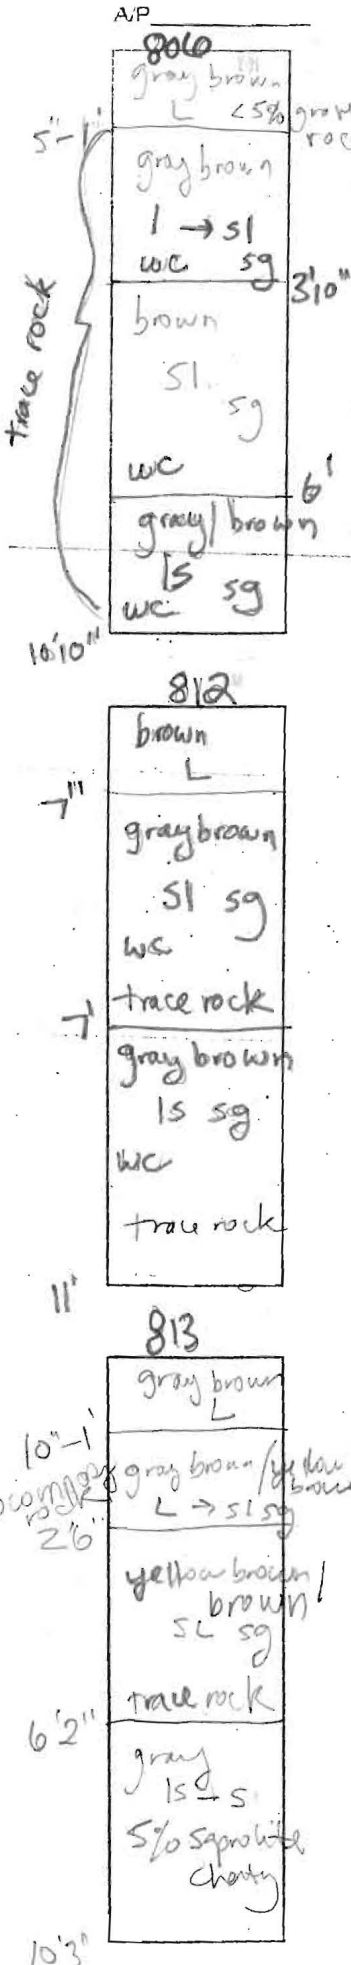 A/P
806
gray brown
L <5% gravel
rock
5"-1'
gray brown
l → sl
wc sg
3'10"
trace rock
brown
sl
sg
wc
6'
gray/brown
ls sg
wc
10'10"
812
brown
L
7"
gray brown
sl sg
wc
trace rock
7'
gray brown
ls sg
wc
trace rock
11'
813
gray brown
L
10"-1'
gray brown/yellow
brown
L → sl sg
2'6"
yellow brown/
brown
SL sg
trace rock
6'2"
gray
ls - s
5% saprolite
10'3"